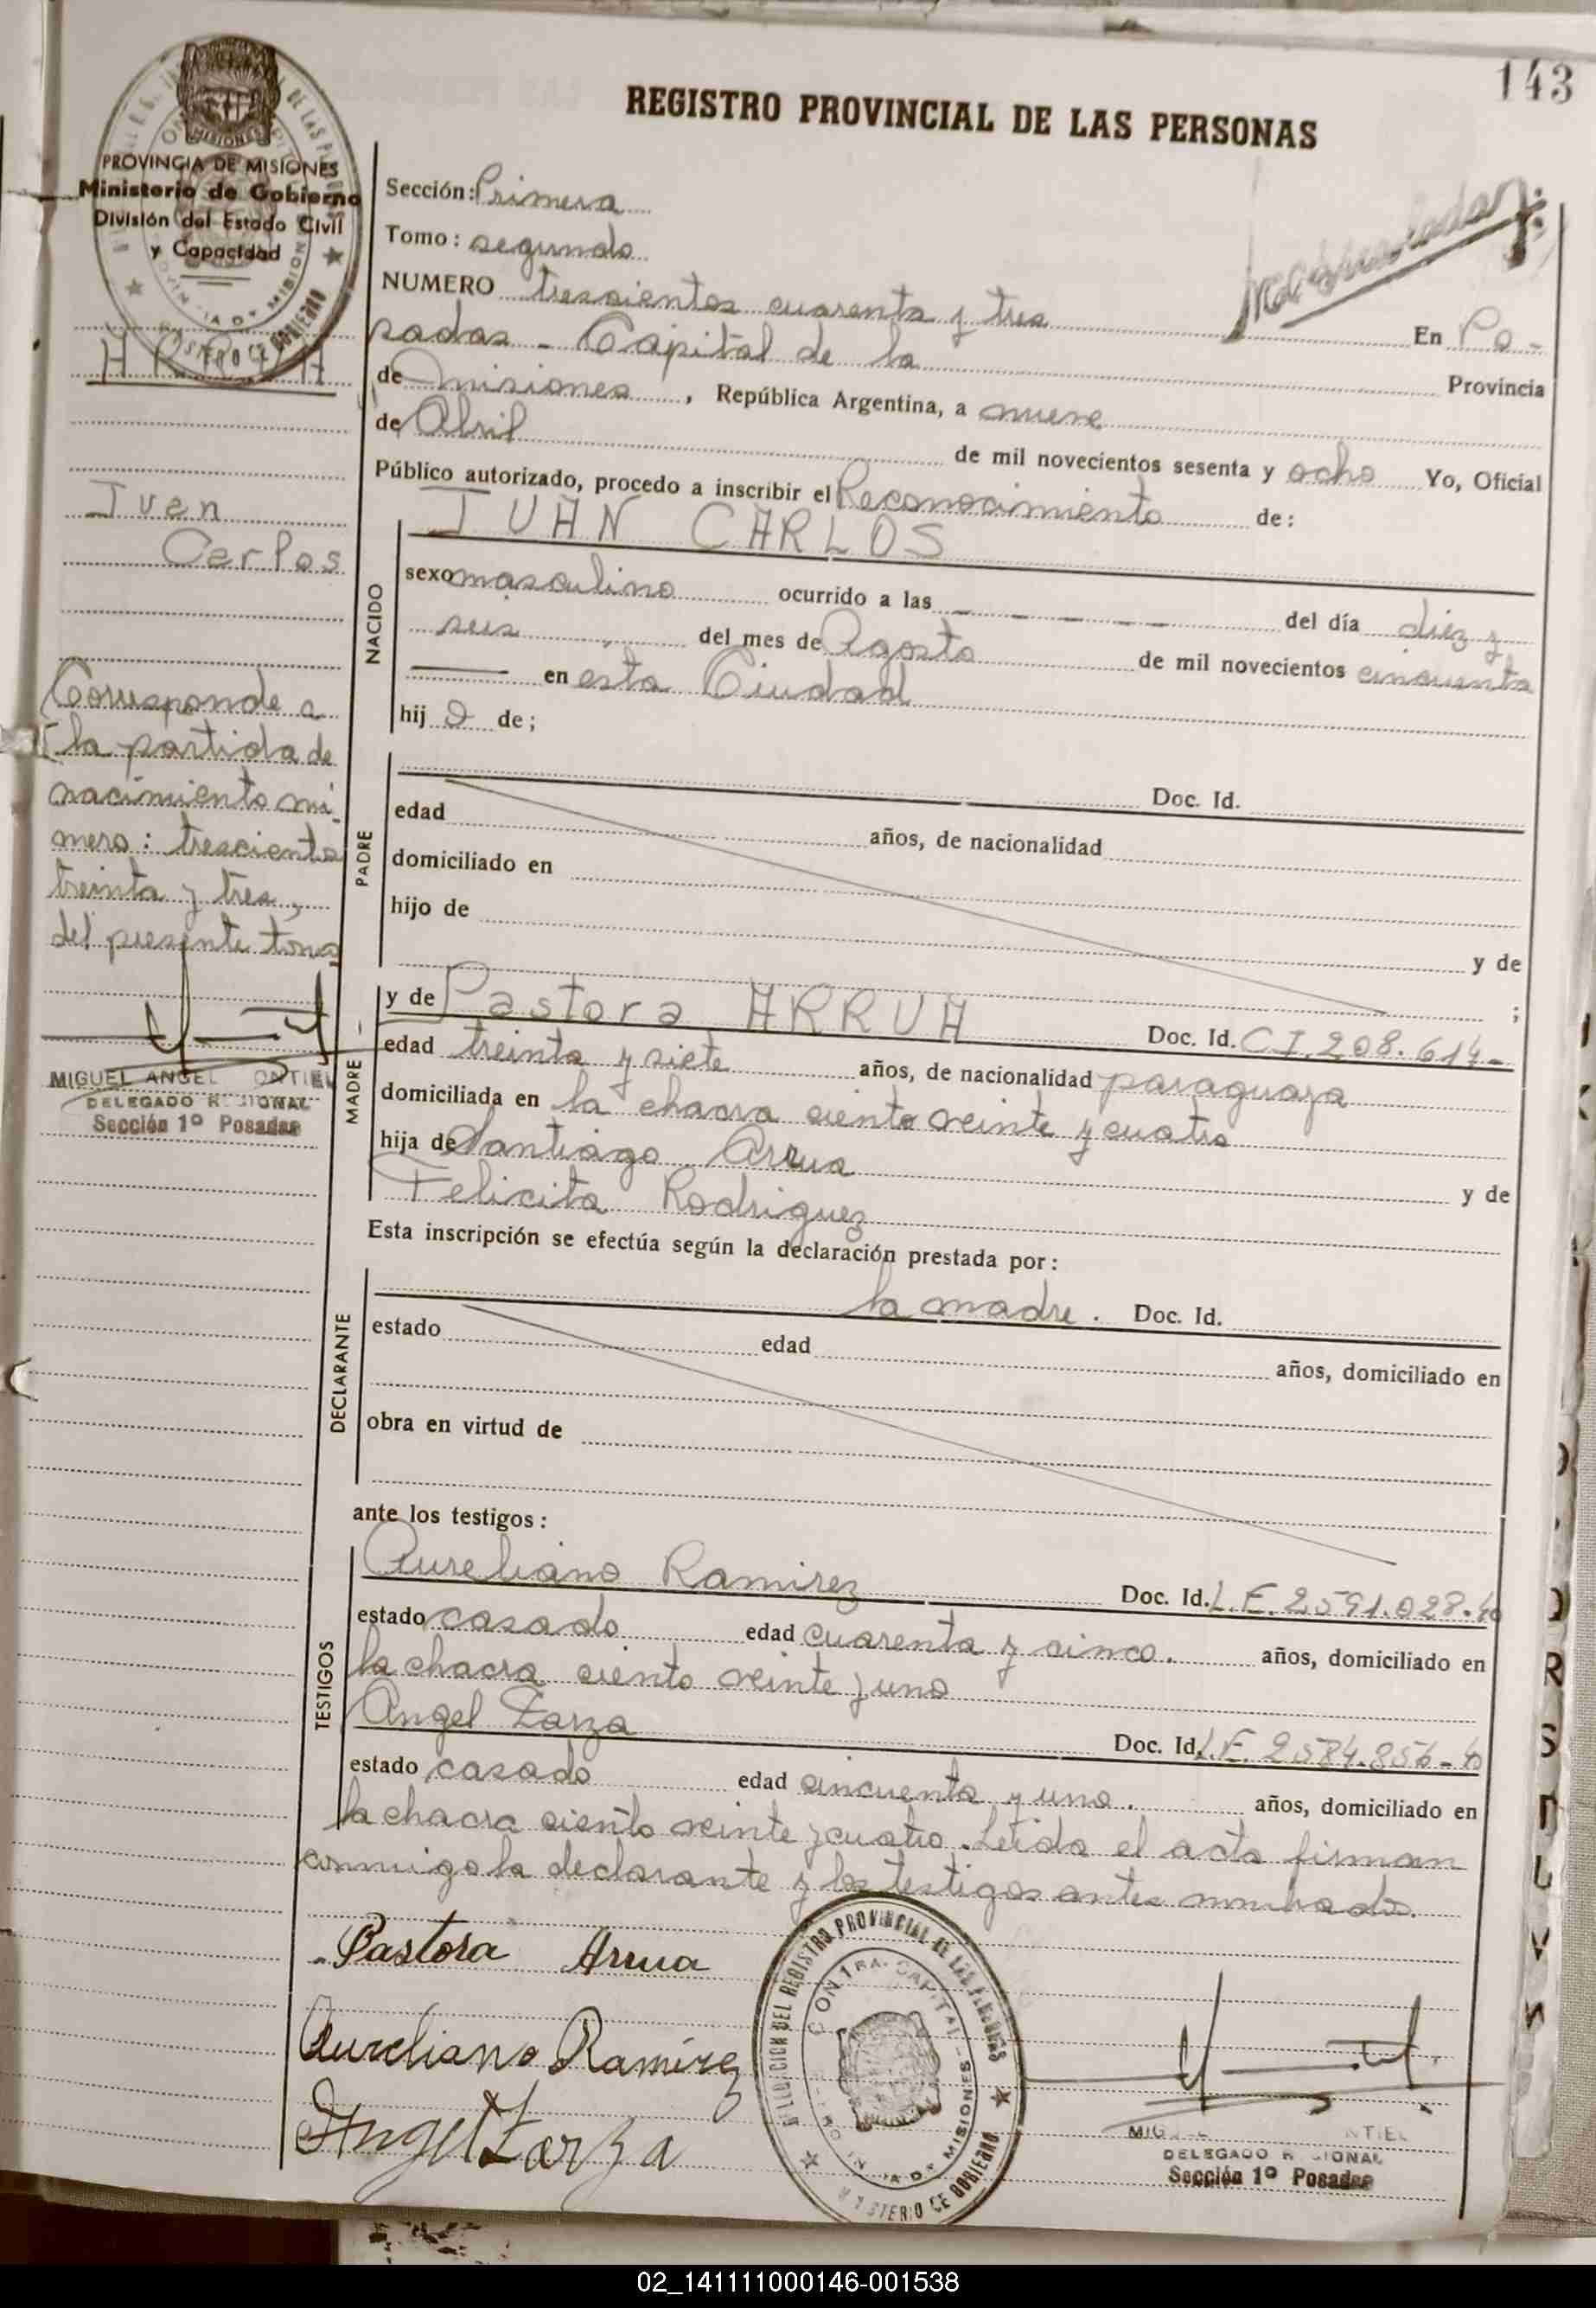 143
REGISTRO PROVINCIAL DE LAS PERSONAS
MISIONES
PROVINCIA DE MISIONES
Ministerio de Gobierno
División del Estado Civil
y Capacidad
ARRUA
Juan
Carlos
Corresponde a
la partida de
nacimiento nú-
mero: trescientos
treinta y tres,
del presente tomo
MIGUEL ANGEL ONTIE
DELEGADO R IONAL
Sección 1º Posadas
Sección: Primera
Tomo: segundo
NUMERO trescientos cuarenta y tres En Po-
sadas - Capital de la Provincia
de Misiones, República Argentina, a nueve
de Abril de mil novecientos sesenta y ocho Yo, Oficial
Público autorizado, procedo a inscribir el Reconocimiento de:
NACIDO
JUAN CARLOS
sexo masculino ocurrido a las - - - - - - del día diez y
seis del mes de Agosto de mil novecientos cincuenta
en esta Ciudad
hij o de;
PADRE
Doc. Id.
edad años, de nacionalidad
domiciliado en
hijo de
y de
;
MADRE
y de Pastora ARRUA Doc. Id. C.I. 208.614-
edad treinta y siete años, de nacionalidad paraguaya
domiciliada en la chacra ciento veinte y cuatro
hija de Santiago Arrua y de
Felicita Rodriguez
Esta inscripción se efectúa según la declaración prestada por:
DECLARANTE
la madre. Doc. Id.
estado edad años, domiciliado en
obra en virtud de
ante los testigos:
TESTIGOS
Aureliano Ramirez Doc. Id. L.E. 2591.028-
estado casado edad cuarenta y cinco. años, domiciliado en
la chacra ciento veinte y uno
Angel Zarza Doc. Id. L.E. 2584.856-
estado casado edad cincuenta y uno. años, domiciliado en
la chacra ciento veinte y cuatro. Leida el acta firman
conmigo la declarante y los testigos antes nombrados.
Pastora Arrua
Aureliano Ramírez
Angel Zarza
DEL REGISTRO PROVINCIAL DE LAS
CAPITAL
MISIONES
DE GOBIERNO
DELEGADO R IONAL
Sección 1º Posadas
02_141111000146-001538